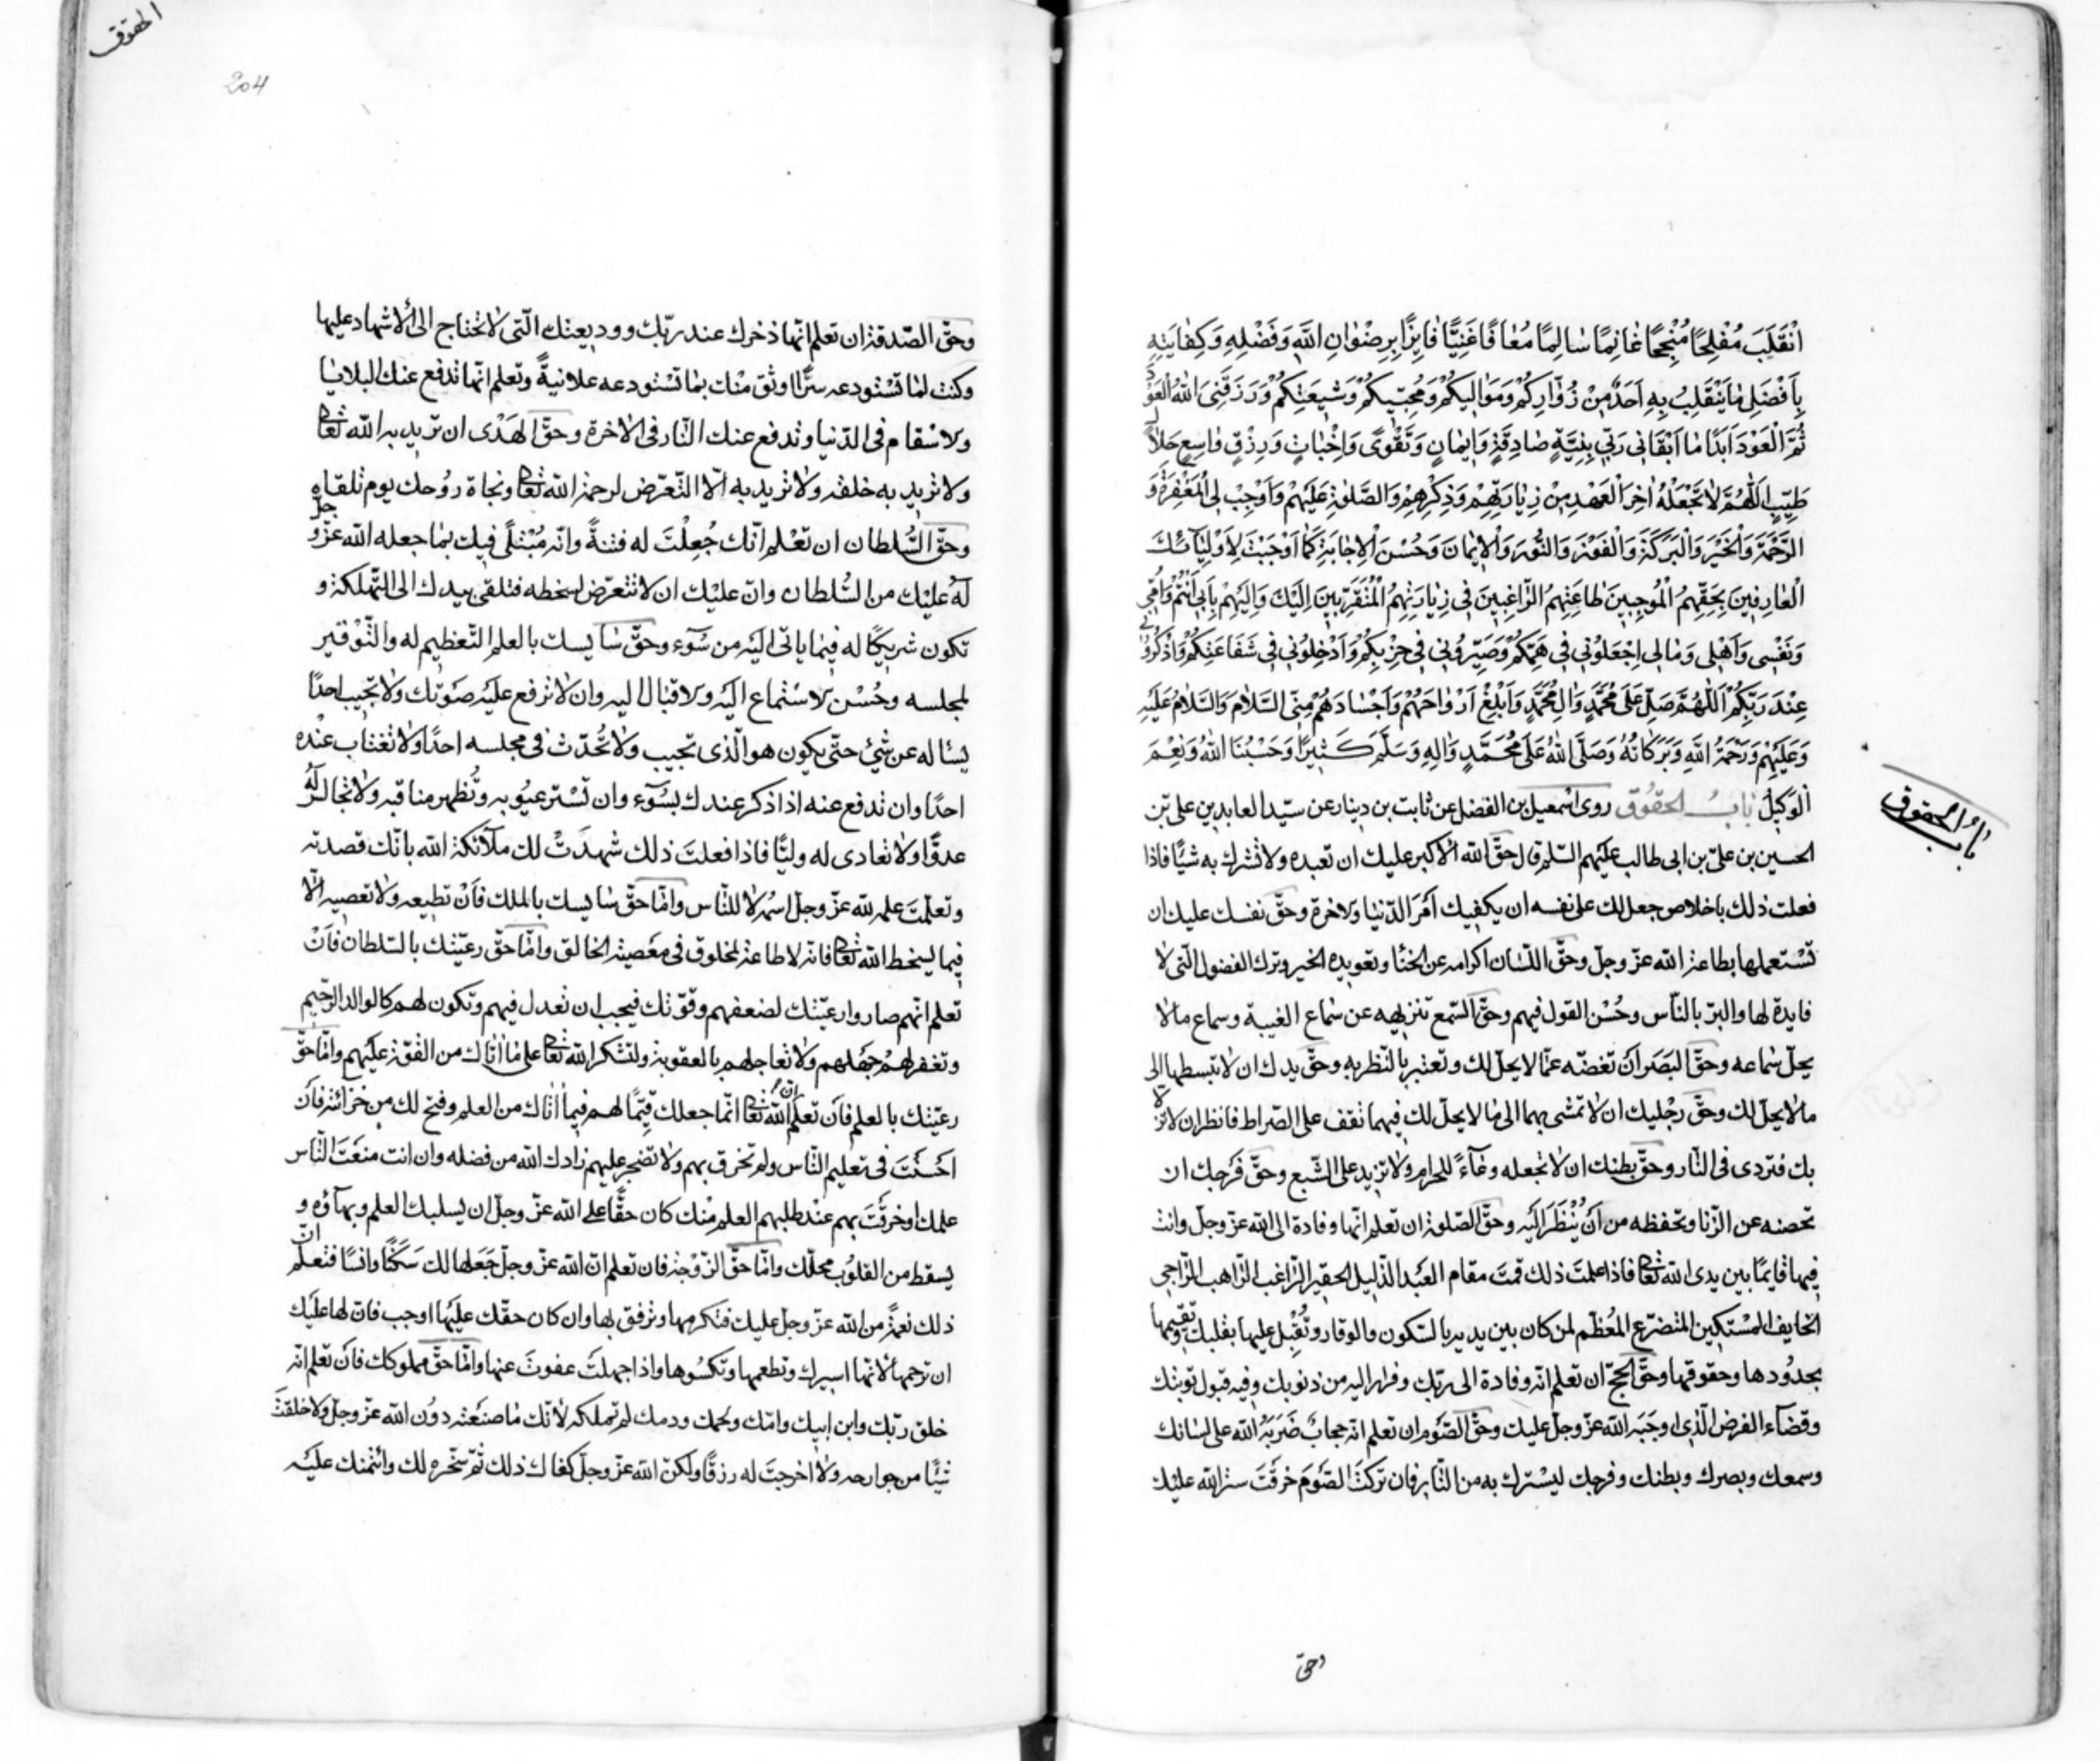 انْقَلَبَ مُفْلِحًا مُنْجِحًا غَانِمًا سَالِمًا مُعَافًا غَنِيًّا فَايِزًا بِرِضْوَانِ اللّٰهِ وَفَضْلِهِ وَكِفَايَتِهِ
بِاَفْضَلِ مَا يَنْقَلِبُ بِهِ اَحَدٌ مِنْ زُوّٰارِكُمْ وَمَوَالِيكُمْ وَمُحِبّيكُمْ وَشيعَتِكُمْ وَرَزَقَنِىَ اللّٰهُ الْعَوْدَ
ثُمَّ الْعَوْدَ اَبَدًا مَا اَبْقَانى رَبّى بِنِيَّةٍ صَادِقَةٍ وَايمَانٍ وَتَقْوىً وَاِخْبَاتٍ وَرِزْقٍ وٰاسِعٍ حَلالٍ
طَيِّبٍ اَللّٰهُمَّ لاٰ تَجْعَلْهُ اٰخِرَ الْعَهْدِ مِنْ زِيَارَتِهِمْ وَذِكْرِهِمْ وَالصَّلوٰةِ عَلَيْهِمْ وَاَوْجِبْ لِىَ الْمَغْفِرَةَ وَ
الرَّحْمَةَ وَالْخَيْرَ وَالْبَرَكَةَ وَالْفَوْزَ وَالنُّورَ وَالْايمَانَ وَحُسْنَ الْاِجَابَةِ كَمَا اَوْجَبْتَ لِاَوْلِيَآئِكَ
الْعَارِفينَ بِحَقِّهِمُ الْمُوجِبينَ طَاعَتِهِمُ الرّٰاغِبينَ فى زِيَارَتِهِمُ الْمُتَقَرِّبينَ اِلَيْكَ وَاِلَيْهِمْ بِاَبى اَنْتُمْ وَاُمّى
وَنَفْسى وَاَهْلى وَمَالى اِجْعَلُونى فى هَمِّكُمْ وَصَيِّرُونى فى حِزْبِكُمْ وَاَدْخِلُونى فى شَفَاعَتِكُمْ وَاذْكُرُونى
عِنْدَ رَبِّكُمْ اَللّٰهُمَّ صَلِّ عَلٰى مُحَمَّدٍ وَاٰلِ مُحَمَّدٍ وَاَبْلِغْ اَرْوٰاحَهُمْ وَاَجْسَادَهُمْ مِنِّى السَّلاٰمَ وَالسَّلاٰمُ عَلَيْهِ
وَعَلَيْهِمْ وَرَحْمَةُ اللّٰهِ وَبَرَكَاتُهُ وَصَلَّى اللّٰهُ عَلٰى مُحَمَّدٍ وَاٰلِهِ وَسَلَّمَ كَثيرًا وَحَسْبُنَا اللّٰهُ وَنِعْمَ
الْوَكيلُ بَابُ الحقُوُق روى اسْمعيل بن الفضل عن ثابت بن دينار عن سيّد العابدين على بن
الحسين بن علىّ بن ابى طالب عليهم السّلم قال حقّ الله الاكبر عليك ان تعبده ولا تشرك به شيئًا فاذا
فعلت ذلك باخلاص جعل لك على نفسه ان يكفيك امْرَ الدّنيا والاخرة وحقّ نفسك عليك ان
تسْتعملها بطاعة الله عزّ وجلّ وحقّ اللّسان اكرامه عن الخنا وتعويده الخير وترك الفضول الّتى لا
فايدة لها والبرّ بالنّاس وحُسْن القول فيهم وحقّ السّمع تنزيهه عن سَماع الغيبة وسماع مالا
يحلّ سَماعه وحقّ البَصَر انْ تغضّه عمّا لا يحلّ لك وتعتبر بالنّظر به وحقّ يدك ان لا تبسطها الى
مالا يحلّ لك وحقّ رجْليك ان لا تمْشى بهما الى ما لا يحلّ لك فبهما تقف على الصّراط فانظر ان لا تزلّا
بك فتردى فى النّار وحقّ بطنك ان لا تجعله وعاءً للحرام ولا تزيد على الشّبع وحقّ فَرْجك ان
تحصنه عن الزّنا وتحفظه من انْ يُنْظَرَ اليْه وحقّ الصّلوة ان تعلم انّها وفادة الى الله عزّ وجلّ وانت
فيها قايمًا بين يدى الله تعالى فاذا علمتَ ذلك قمتَ مقام العَبْد الذّليل الحقير الرّاغب الرّاهب الرّاجى
الخايف المسْتكين المتضرّع المعُظّم لمن كان بين يديه بالسّكون والوقار وتُقْبل عليها بقلبك وتقيمها
بحدُودها وحقوقها وحقّ الحجّ ان تعلم انّه وفادة الى ربّك وفرار اليه من ذنوبك وفيه قبول توبتك
وقضآء الفرض الّذى اوجَبَه الله عزّ وجلّ عليك وحقّ الصّوْم ان تعلم انّه حجابٌ ضَرَبَهُ الله على لسَانك
وسمعك وبصرك وبطنك وفرجك ليسْترك به من النّار فان تركتَ الصّوْمَ خرقْتَ ستر الله عليْك
وحقّ
بابُ الحُقوق
الحقوق
204
وحقّ الصّدقة ان تعلم انّها ذخرك عند ربّك ووديعتك الّتى لا تحتاج الى الاشهاد عليها
وكنت لما تسْتودعه سرًّا اوثق منْك بما تسْتودعه علانيةً وتعلم انّها تدفع عنك البلايا
والاسْقام فى الدّنيا وتدفع عنك النّار فى الاخرة وحقّ الهَدْى ان تريد به الله تعالى
ولا تريد به خلقه ولا تريد به الّا التّعرّض لرحمة الله تعالى ونجاة روُحك يوم تلقاه
وحقّ السُّلطان ان تعْلم انّك جُعِلْتَ له فتنةً وانّه مُبْتلًى فيك بما جعله الله عزّ وجلّ
لَهُ عليْك من السُّلطان وانّ عليْك ان لا تتعرّض لسخطه فتلقى بيدك الى التّهلكة و
تكون شريكًا له فيما ياتى اليْه من سُوٓء وحقّ سَايسك بالعلم التّعظيم له والتّوْقير
لمجلسه وحُسْن الاسْتماع اليْه والاقبال اليه وان لا ترفع عليْه صَوْتك ولا تجيب احدًا
يسْاله عن شئ حتّى يكون هو الّذى تجيب ولا تُحدّث فى مجلسه احدًا ولا تغتاب عنْده
احدًا وان تدفع عنه اذا ذكر عندك بسُوٓء وان تسْتر عيُوبه وتُظهر مناقبه ولا تجالس لَهُ
عدوًّا ولا تعادى له وليًّا فاذا فعلتَ ذلك شهدَتْ لك ملآئكة الله بانّك قصدته
وتعلّمتَ علمه لله عزّ وجلّ اسْمُه لا للنّاس وامّا حقّ سَايسك بالملك فانْ تطيعه ولا تعصيه الّا
فيما يسخط الله تعالى فانّه لا طاعة لمخلوق فى معْصية الخالق وامّا حقّ رعيّتك بالسّلطان فانْ
تعلم انّهم صاروا رعيّتك لضعفهم وقوّتك فيجب ان تعدل فيهم وتكون لهم كالوالد الرّحيم
وتغفر لهمْ جهْلهم ولا تعاجلهم بالعقوبة ولتشكر الله تعالى على ما اتاك من القوّة عليْهم وامّا حقّ
رعيّتك بالعلم فانْ تعلم انّ الله تعالى انّما جعلك قيّمًا لهم فيما اتاك من العلم وفتح لك من خزائنه فانْ
احْسَنْتَ فى تعليم النّاس ولم تخرق بهم ولا تضجر عليهم زادك الله من فضله وان انت منعْتَ النّاس
علمك او خرقْتَ بهم عنْد طلبهم العلم منْك كان حقًّا على الله عزّ وجلّ ان يسلبك العلم وبهآؤه و
يسقط من القلوُب محلّك وامّا حقّ الزّوْجة فان تعلم انّ الله عزّ وجلّ جَعَلها لك سَكَنًا وانسًا فتعلم انّ
ذلك نعمةٌ من الله عزّ وجلّ عليك فتكرمها وترفق بها وان كان حقّك عليْها اوجب فانّ لها عليْك
ان ترحمها لانّها اسيرك وتطعمها وتكسُوها واذا جهلتْ عفوتَ عنها وامّا حقّ مملوكك فانْ تعلم انّه
خلق ربّك وابن ابيك وامّك ولحمك ودمك لم تملكه لانّك ما صنعْته دوُن الله عزّ وجلّ ولا خلقتَ
شيْئًا من جوارحه ولا اخرجتَ له رزقًا ولكنّ الله عزّ وجلّ كفاك ذلك ثمّ سخّره لك وائتمنك عليْه